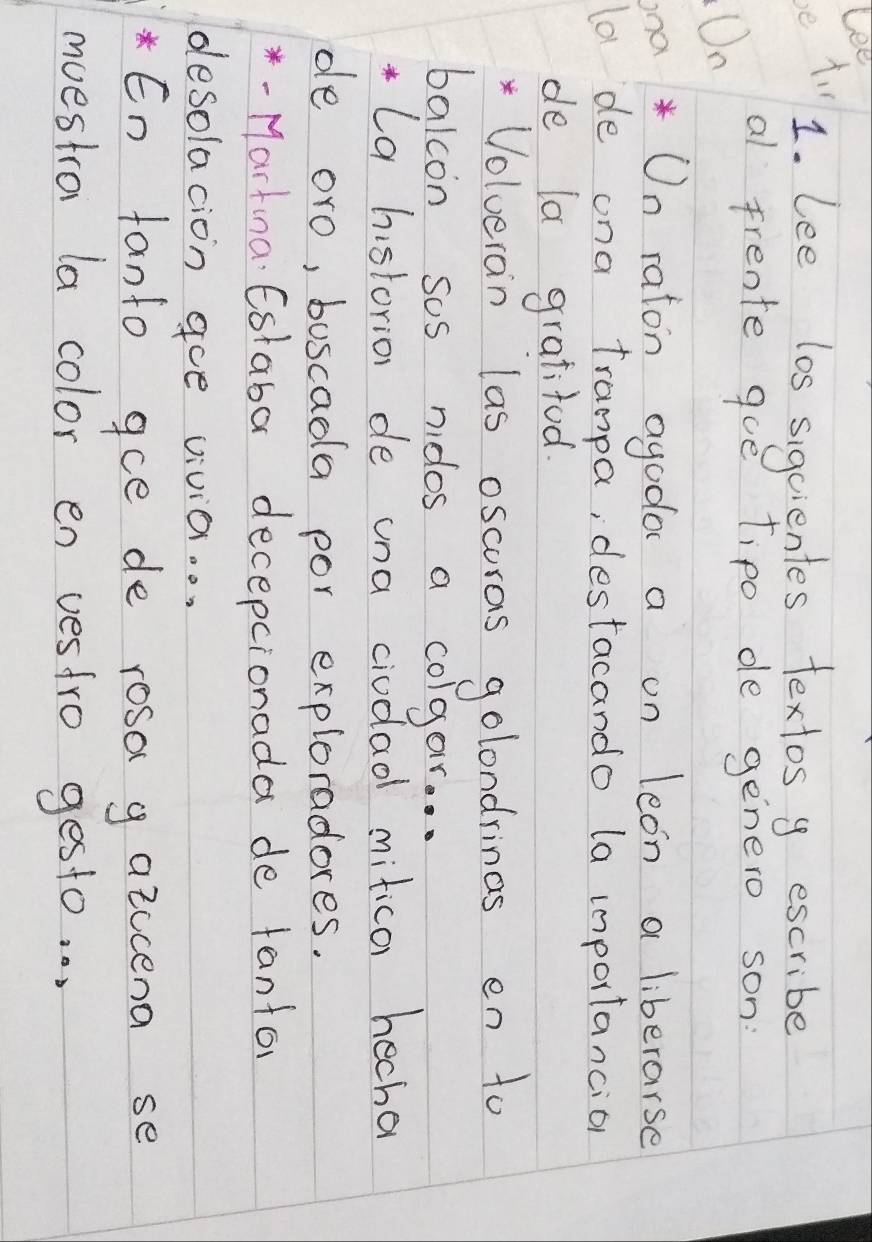 1. Lee los siguientes textos y escribe
al frente que tipo de género son:
* Un ratón ayuda a un león a liberarse
de una trampa, destacando la importancia
de la gratitud.
* Volverán las oscuras golondrinas en tu
balcón sus nidos a colgar...
* La historia de una ciudad mítica hecha
de oro, buscada por exploradores.
*- Martina. Estaba decepcionada de tanta
desolación que vivia...
* En tanto que de rosa y azucena se
muestra la color en vestro gesto...
Lee
Un
la